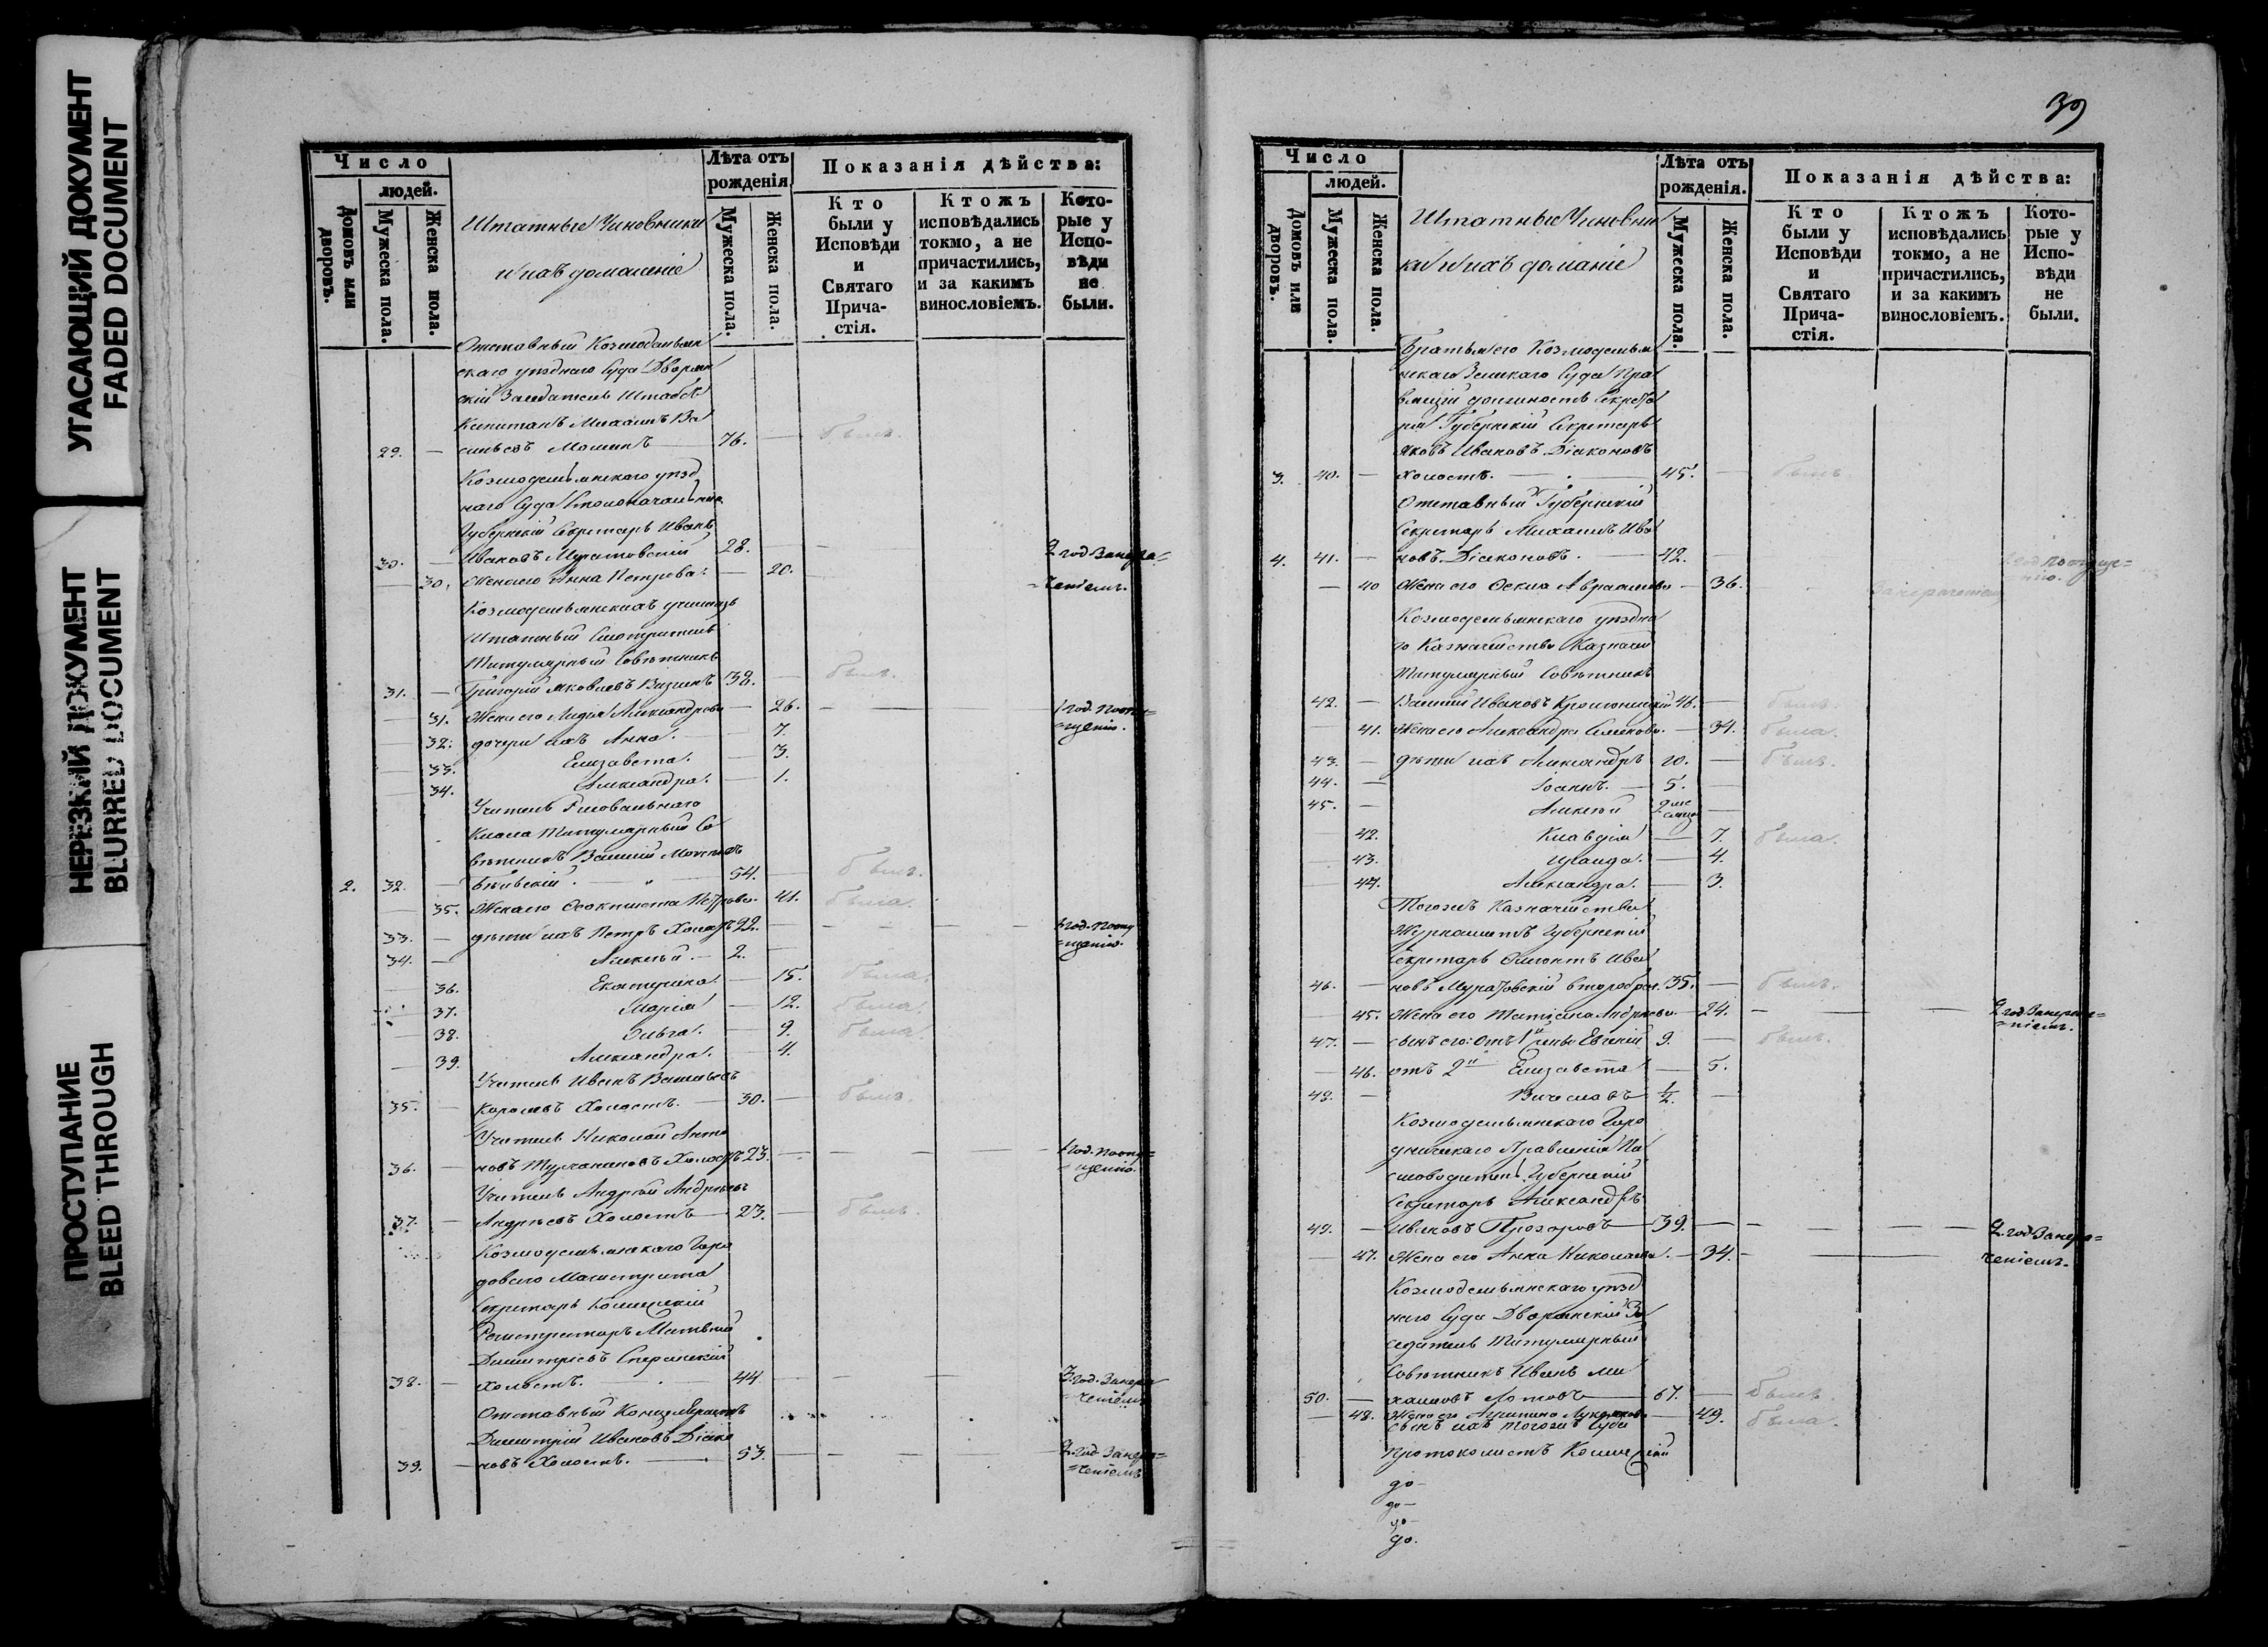 УГАСАЮЩИЙ ДОКУМЕНТ
FADED DOCUMENT
НЕРЕЗКИЙ ДОКУМЕНТ
BLURRED DOCUMENT
ПРОСТУПАНИЕ
BLEED THROUGH
Число
людей.
Домовъ или дворовъ.
Мужеска пола.
Женска пола.
Штатные Чиновники
и ихъ домашніе
Лѣта отъ рожденія
Мужеска пола.
Женска пола.
Показанія дѣйства:
Кто были у Исповѣди и Святаго Прича-стія.
Ктожъ исповѣдались токмо, а не причастились, и за какимъ винословіемъ.
Кото-рые у Испо-вѣди не были.
Отставный Козмодемьян
скаго уѣзднаго Суда Дворян
скій Засѣдатель Штабсъ
Капитанъ Михаилъ Ва
29. — сильевъ Мошинъ 76. — былъ.
Козмодемьянскаго уѣзд
наго Суда Столоначальникъ
Губернскій Секретарь Иванъ
30. — Ивановъ Муратовскій 28. — 2 год Занера-
— 30. Жена его Анна Петрова. — 20. =ченіемъ.
Козмодемьянскихъ училищъ
Штатный Смотритель
Титулярный Совѣтникъ
31. — Григорій Яковлевъ 38. — былъ.
— 31. Жена его Лидія Александрова — 26. — 1 год. Поопу=
— 32. дочери ихъ Анна. — 7. =щенію.
— 33. Елизавета. — 3.
— 34. Александра. — 1.
Учитель Рисовальнаго
Класса Титулярный Со
вѣтникъ Василій
2. 32. — 54. — былъ.
— 35. Жена его Ѳеоктиста Петрова. 41. была.
33. — дѣти ихъ Петръ Холостъ 22. — 1 год. Поопу
=щенію.
34. — Алексѣй. — 2. —
— 36. Екатерина. — 15. была.
— 37. Марія — 12. была.
— 38. Ольга. — 9. была.
— 39. Александра. — 4.
Учитель Иванъ Васильевъ
35. — Холостъ. — 30. — былъ.
Учитель Николай Анто
36. — новъ Холостъ 23. — 1 год. Поопу=
=щенію.
Учитель Андрей Андреевъ
37. — Андреевъ Холостъ — 23. — былъ.
Козмодемьянскаго Горо
доваго Магистрата
Секретарь Коллежскій
Регистраторъ Матвѣй
Димитріевъ Сперанскій
38. — Холостъ. 44 — 2 год. Занера
=ченіемъ
Отставный Канцеляристъ
Димитрій Ивановъ Діако
39. — новъ Холостъ. — 53. — 2. год. Занера=
=ченіемъ
39
Число
людей.
Домовъ или дворовъ.
Мужеска пола.
Женска пола.
Штатные Чиновни
ки и ихъ доманіе
Лѣта отъ рожденія.
Мужеска пола.
Женска пола.
Показанія дѣйства:
Кто были у Исповѣди и Святаго Прича-стія.
Ктожъ исповѣдались токмо, а не причастились, и за какимъ винословіемъ.
Кото-рые у Испо-вѣди не были.
Братъ его Козмодемьян
скаго Земскаго Суда Пра
вящій должность Секрета
ря Губернскій Секретарь
Яковъ Ивановъ Діаконовъ
3. 40. — Холостъ. — 45. — былъ
Отставный Губернскій
Секретарь Михаилъ Ива
4. 41. — новъ Діаконовъ. — 42. — год Поопуще=
нію.
— 40 Жена его Ѳекла Авраамова — 36.
Козмодемьянскаго уѣздна
го Казначейства Казначей
Титулярный Совѣтникъ
42. — Василій Ивановъ 46. — былъ.
— 41. Жена его Александра Семенова. — 34. была.
43. — дѣти ихъ Александръ 10. — былъ.
44. — Іоаннъ. — 5. —
45. — Алексѣй 2 —
— 42. Клавдія — 7. была.
— 43. — 4.
— 44. Александра. — 3.
Тогожъ Казначейства
Журналистъ Губернскій
Секретарь Ива
46. — новъ Муратовскій второбрач. 35. — былъ.
— 45. Жена его Татіана Андреева. — 24. — 2 год Занера=
=ніемъ.
47. — сынъ его: отъ 1й жены Евгеній 9. — былъ.
— 46. отъ 2й Елизавета — 5.
48. — Вячеславъ 1/2. —
Козмодемьянскаго Горо
дническаго Правленія Пи
сьмоводитель Губернскій
Секретарь Александръ
49. — Ивановъ Прозоровъ — 39. — 2. год Занера=
— 47. Жена его Анна Николаева. — 34. — ченіемъ.
Козмодемьянскаго уѣзд
наго Суда Дворянскій За
седатель Титулярный
Совѣтникъ Иванъ Ми
50. — хайловъ — 67. — былъ.
— 48. Жена его — 49. была.
сынъ ихъ тогожъ Суда
Протоколистъ Коллежскій
до —
до —
до —
до.